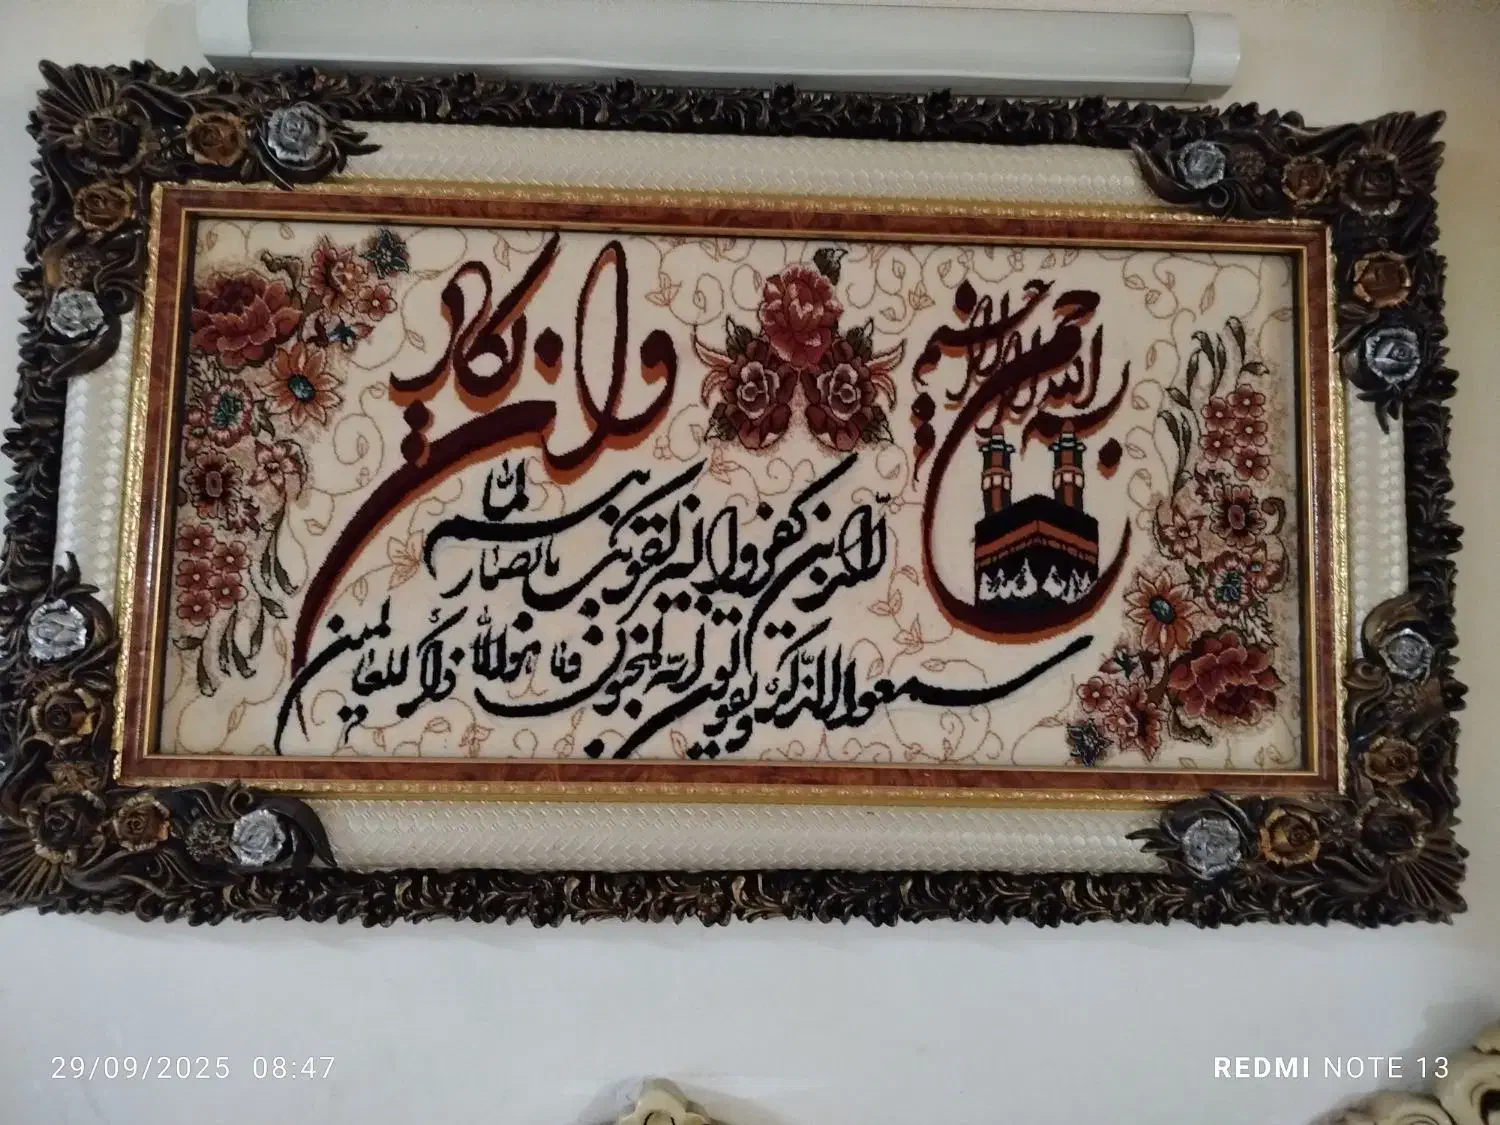 بسم الله الرحمن الرحيم
وان يكاد
الذين كفروا ليزلقونك بابصارهم لما
سمعوا الذكر ويقولون انه لمجنون وما هو الا ذكر للعالمين
29/09/2025 08:47
REDMI NOTE 13